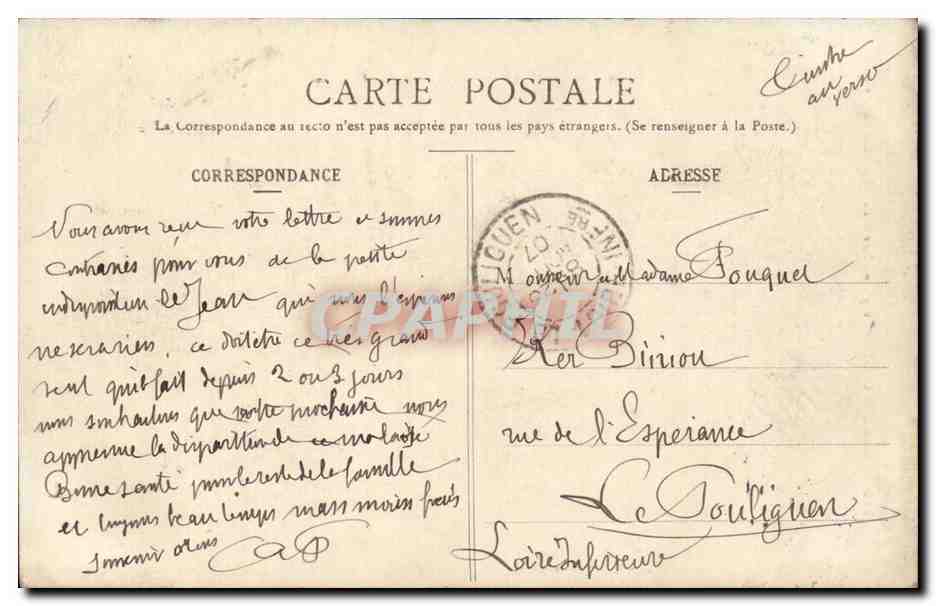 Timbre
au
verso
CARTE POSTALE
La Correspondance au recto n'est pas acceptée par tous les pays étrangers. (Se renseigner à la Poste.)
CORRESPONDANCE
ADRESSE
Nous avons reçu votre lettre et sommes
contrariés pour vous de la petite
indisposition de Jean qui nous l'espérons
ne sera rien, ce doit être ce très grand
vent qu'il fait depuis 2 ou 3 jours
nous souhaitons que votre prochaine nous
apprenne la disparition de ce malaise
Bonne santé pour le reste de la famille
et toujours beau temps mais moins frais
Souvenir
Monsieur et Madame Fouquet
Ker Biniou
rue de l'Espérance
Le Pouliguen
Loire Inférieure
POULIGUEN
07
INFRE
CPAPHIL